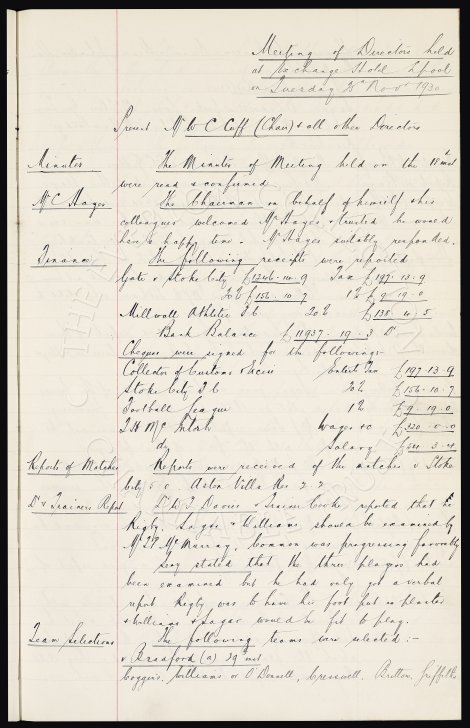 Meeting of Directors held
at Exchange Hotel L'pool
on Tuesday 25th Novr 1930
Present Mr W C Cuff (Chair) & all other Directors
Minutes The Minutes of Meeting held on the 18th inst
were read & confirmed.
Mr C Hayes The Chairman on behalf of himself & his
colleagues welcomed Mr Hayes & trusted he would
have a happy time. Mr Hayes suitably responded.
Finance The following receipts were reported
Gate v Stoke City £1246.14.9 Tax £197.13.9
20% £156.10.7 1% £9.19.0
Millwall Athletic F.C 20% £138.4.5
Bank Balance £11937.19.3 Dr.
Cheques were signed for the following:-
Collector of Customs & Excise Entert Tax £197.13.9
Stoke City F.C 20% £156.10.7
Football League 1% £9.19.0
T H McIntosh Wages &c £320.0.0
do Salary £54.3.4
Reports of Matches Reports were received of the matches v Stoke
City 5.0. Aston Villa Res 2.2
Dr & Trainers Report Dr D J Davies & Trainer Cooke reported that
Rigby, Sagar & Williams should be examined by
Mr McMurray, Common was progressing favorably
Secy stated that the three players had
been examined but he had only got a verbal
report Rigby was to have his foot put in plaster
& Williams & Sagar would be fit to play.
Team Selections The following teams were selected:-
v Bradford (a) 29th inst
Coggins, Williams or O'Donnell, Cresswell, Britton, Griffiths